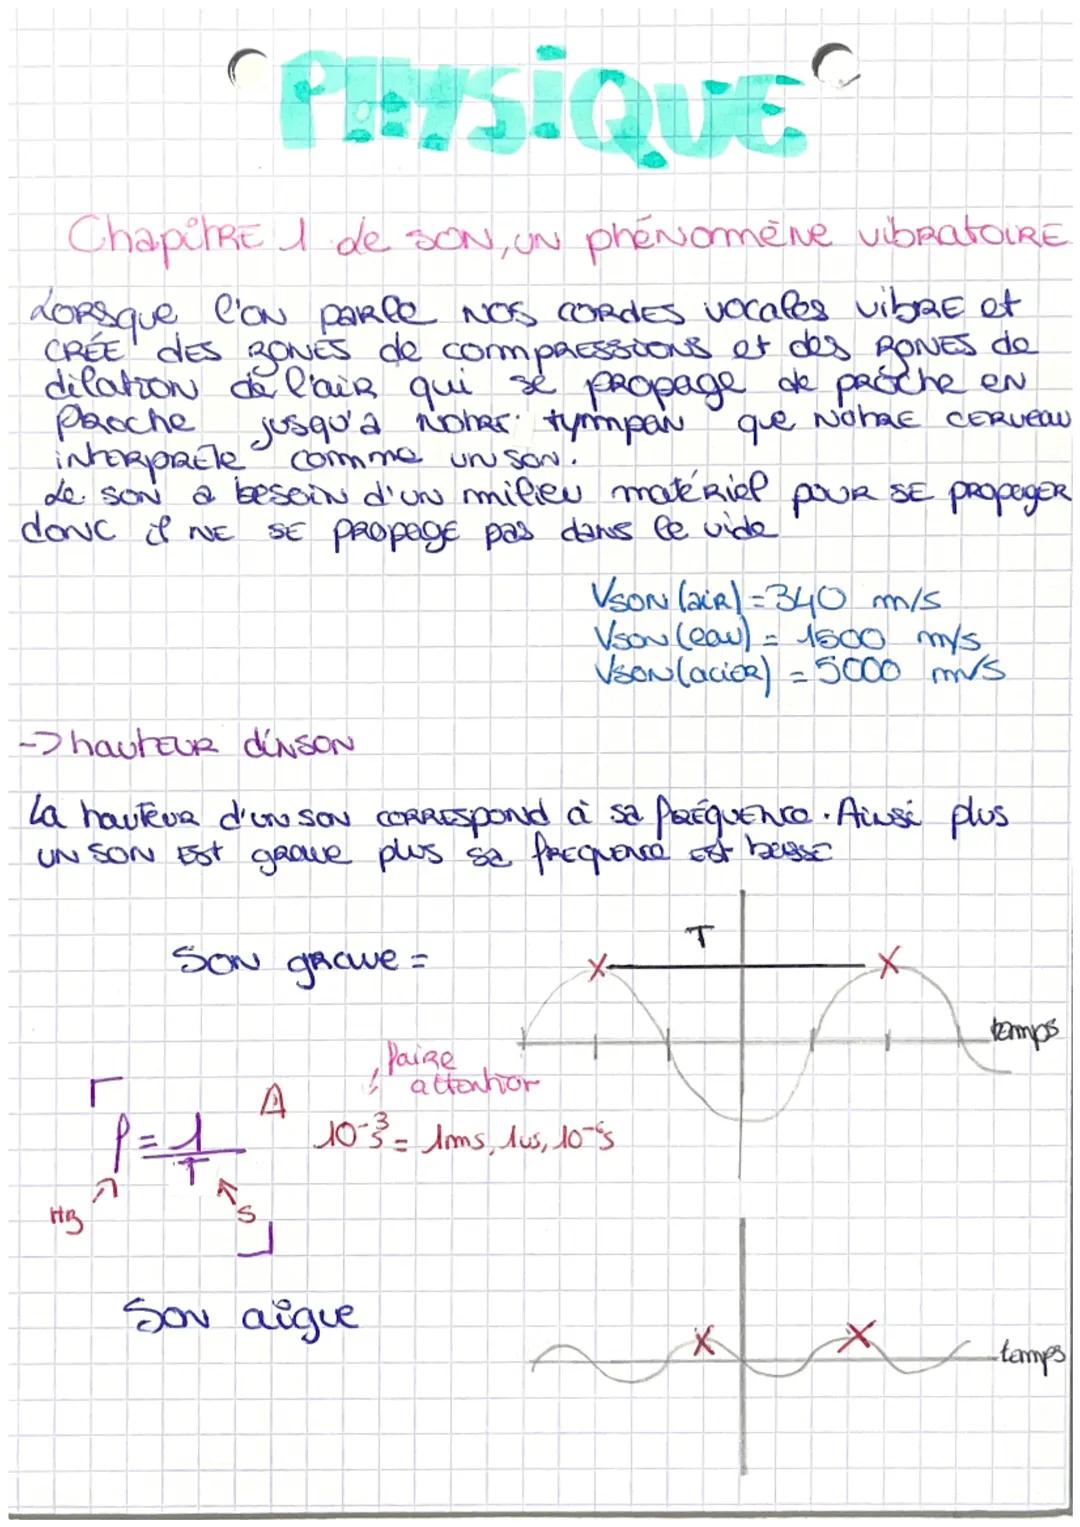 PHYSIQUE
Chapitre 1 de son, un phénomène vibratoire
Lorsque l'on parle nos cordes vocales vibre et
crée des zones de compressions et des zones de
dilation de l'air qui se propage de proche en
proche jusqu'à notre tympan que notre cerveau
interprète comme un son.
Le son a besoin d'un milieu matériel pour se propager
donc il ne se propage pas dans le vide
Vson (air) = 340 m/s
Vson (eau) = 1500 m/s
Vson (acier) = 5000 m/s
-> hauteur d'unson
La hauteur d'un son correspond à sa fréquence. Ainsi plus
un son est grave plus sa frequence est basse
T
Son grave =
temps
faire
attention
f = 1/T
10-3s = 1ms, 1us, 10-6s
Hz
s
Son aigue
temps